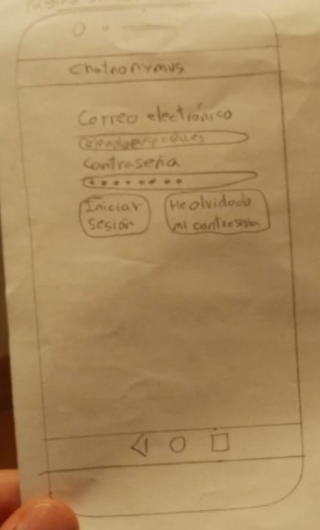 Página
Chatnonymus
Correo electrónico
Contraseña
Iniciar
Sesión
He olvidado
mi contraseña